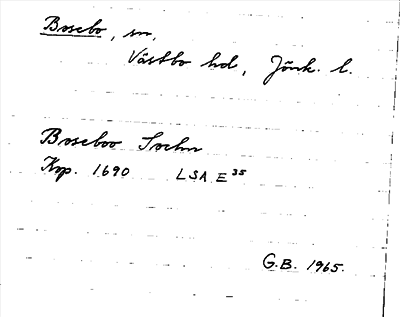 Bosebo, sn.
Västbo hd, Jönk. l.
Boseboo Sochn
Kop. 1690 LSA E 35
G.B. 1965.